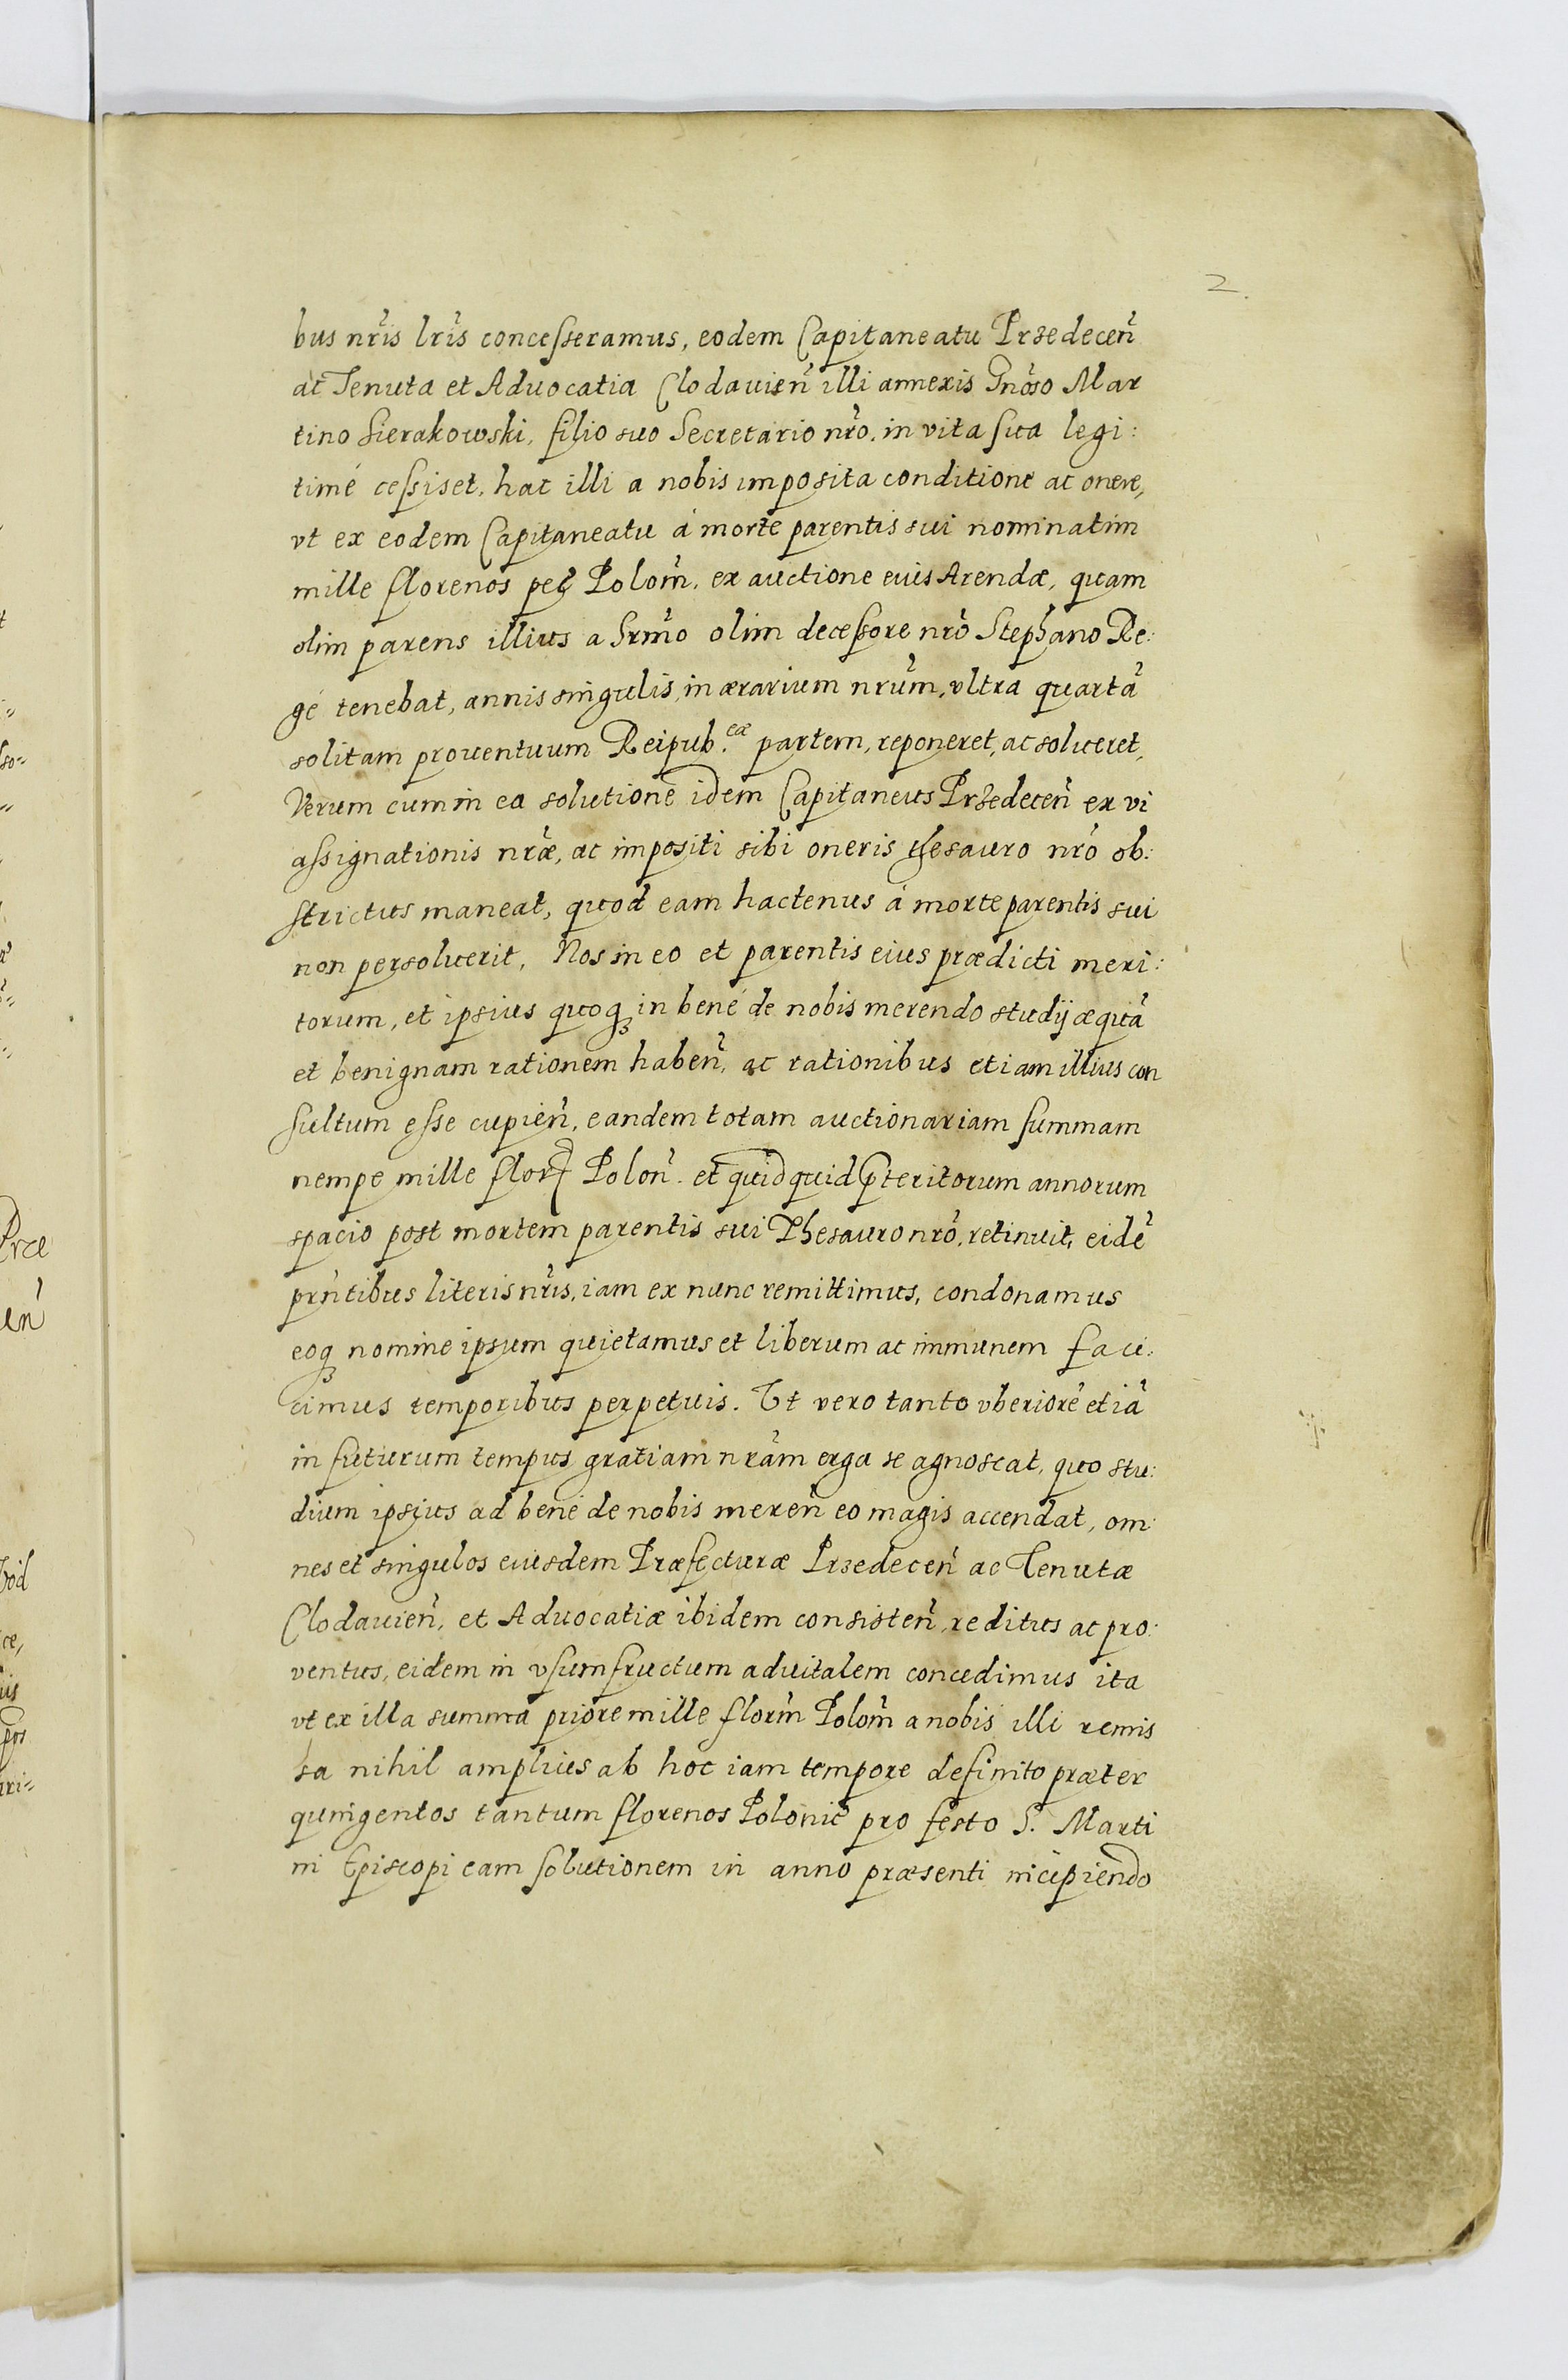 2.
bus nr̃is lr̃is concesseramus, eodem Capitaneatu Przedeceñ
ac Tenuta et Aduocatia Clodauień illi annexis Gnõso Mar
tino Sierakowski, filio suo Secretario nr̃o, in vita sua legi:
timé cessiset, hac illi a nobis imposita conditione ac onere,
vt ex eodem Capitaneatu á morte parentis sui nominatim
mille florenos Polom̃, ex auctione euis Arendæ, quam
olim parens illius a Srm̃o olim decessore nr̃o Stephano Re:
gé tenebat, annis singulis, in ærarium nr̃um, vltra quartã
solitam prouentuum Reipub.cæ partem, reponeret, ac solueret,
Verum cum in ea solutione idem Capitaneus Przedeceñ ex vi
assignationis nr̃æ, ac impositi sibi oneris thesauro nr̃o ob:
strictus maneat, quod eam hactenus á morte parentis sui
non persoluerit, Nos in eo et parentis eius prædicti meri:
torum, et ipsius quoq; in bené de nobis merendo studij æquã
et benignam rationem habeñ, ac rationibus etiam illius con
sultum esse cupień, eandem totam auctionariam summam
nempe mille flor Poloñ. et quidquid p̃teritorum annorum
spacio post mortem parentis sui Thesauro nr̃o, retinuit, eidẽ
prñtibus literis nr̃is, iam ex nunc remittimus, condonamus
eoq; nomine ipsum quietamus et liberum ac immunem faci:
cimus temporibus perpetuis. Vt vero tanto vberiorẽ etiã
in futurum tempus gratiam nr̃am erga se agnoscat, quo stu:
dium ipsius ad bené de nobis mereñ eo magis accendat, om:
nes et singulos eiusdem Præfecturæ Przedeceñ ac Tenutæ
Clodauieñ, et Aduocatiæ ibidem consisteñ, reditus ac pro:
ventus, eidem in vsumfructum aduitalem concedimus ita
vt ex illa summa priore mille florm̃ Polom̃ a nobis illi remis
sa nihil amplius ab hoc iam tempore definito præter
quingentos tantum florenos Polonic̃ pro festo S. Marti
ni Episcopi eam solutionem in anno præsenti incipiendo